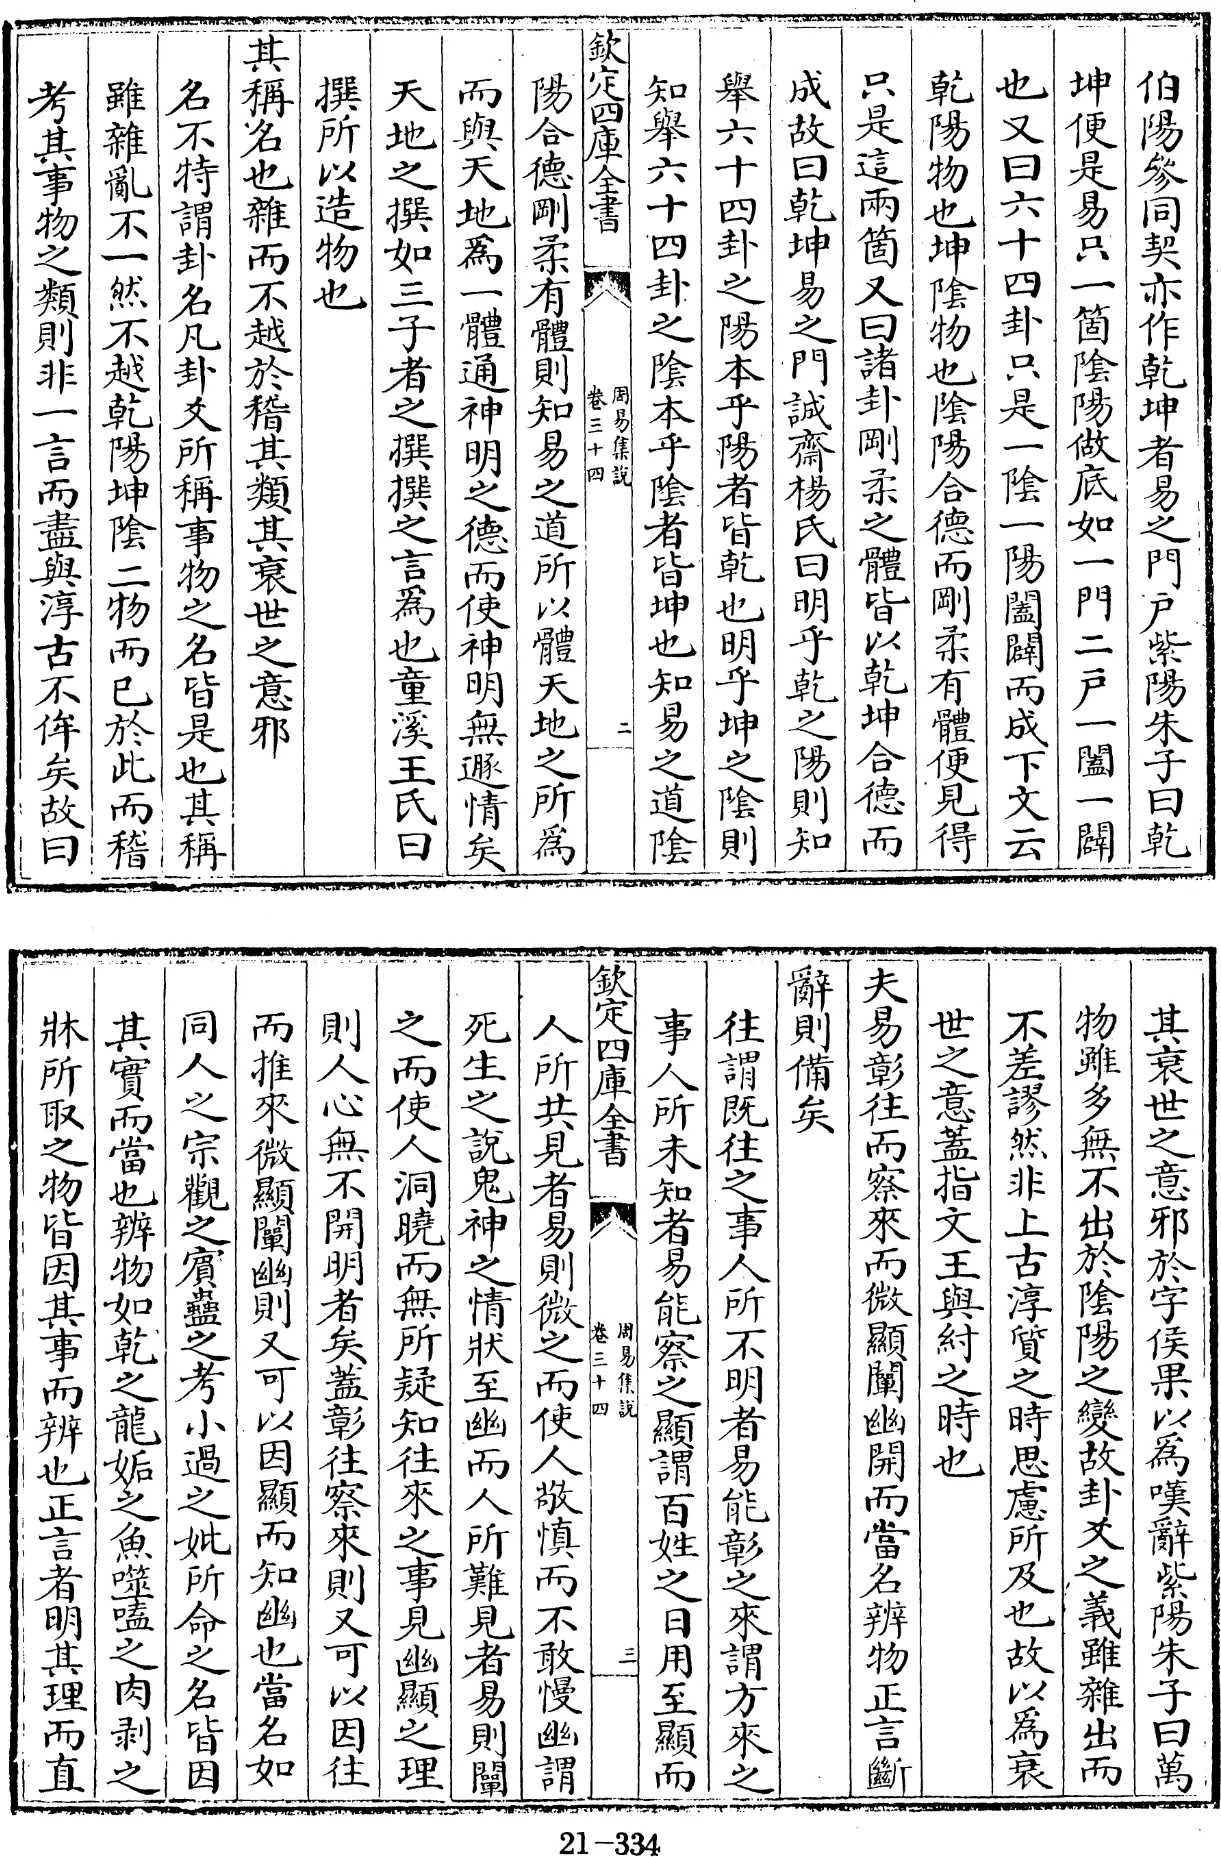 伯陽參同契亦作乾坤者易之門戶紫陽朱子曰乾
坤便是易只一箇陰陽做底如一門二戶一闔一闢
也又曰六十四卦只是一陰一陽闔闢而成下文云
乾陽物也坤陰物也陰陽合德而剛柔有體便見得
只是這兩箇又曰諸卦剛柔之體皆以乾坤合德而
成故曰乾坤易之門誠齋楊氏曰明乎乾之陽則知
舉六十四卦之陽本乎陽者皆乾也明乎坤之陰則
知舉六十四卦之陰本乎陰者皆坤也知易之道陰
欽定四庫全書
周易集說
卷三十四
二
陽合德剛柔有體則知易之道所以體天地之所為
而與天地為一體通神明之德而使神明無遯情矣
天地之撰如三子者之撰撰之言為也童溪王氏曰
撰所以造物也
其稱名也雜而不越於稽其類其衰世之意邪
名不特謂卦名凡卦爻所稱事物之名皆是也其稱
雖雜亂不一然不越乾陽坤陰二物而已於此而稽
考其事物之類則非一言而盡與淳古不侔矣故曰
其衰世之意邪於字侯果以為嘆辭紫陽朱子曰萬
物雖多無不出於陰陽之變故卦爻之義雖雜出而
不差謬然非上古淳質之時思慮所及也故以為衰
世之意蓋指文王與紂之時也
夫易彰往而察來而微顯闡幽開而當名辨物正言斷
辭則備矣
往謂既往之事人所不明者易能彰之來謂方來之
事人所未知者易能察之顯謂百姓之日用至顯而
欽定四庫全書
周易集說
卷三十四
三
人所共見者易則微之而使人敬慎而不敢慢幽謂
死生之說鬼神之情狀至幽而人所難見者易則闡
之而使人洞曉而無所疑知往來之事見幽顯之理
則人心無不開明者矣蓋彰往察來則又可以因往
而推來微顯闡幽則又可以因顯而知幽也當名如
同人之宗觀之賓蠱之考小過之妣所命之名皆因
其實而當也辨物如乾之龍姤之魚噬嗑之肉剥之
牀所取之物皆因其事而辨也正言者明其理而直
21-334